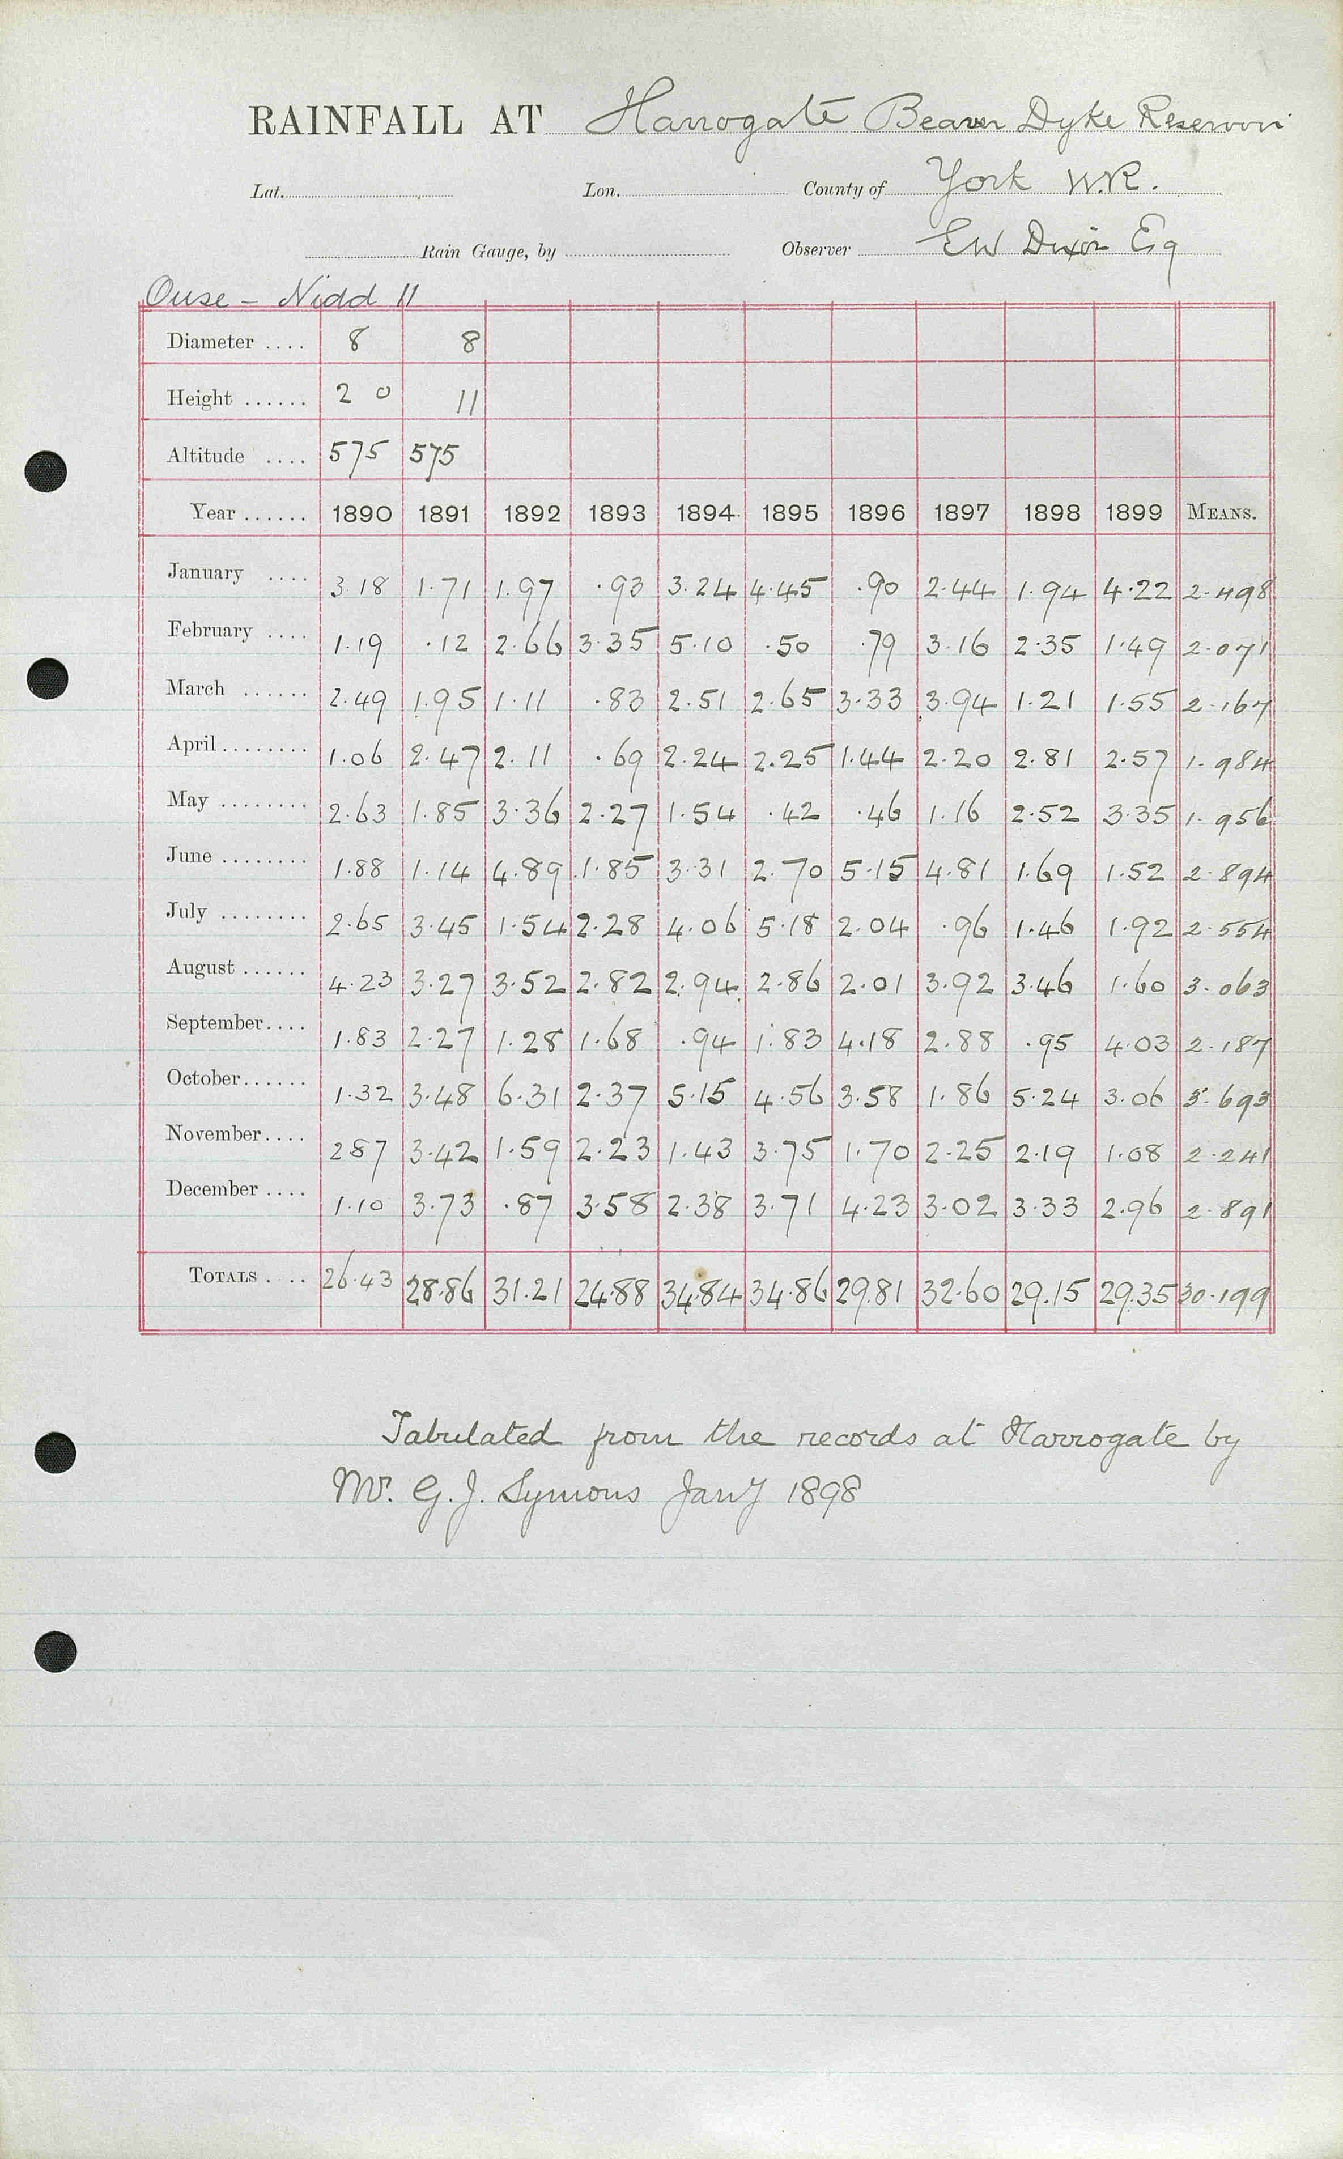 RAINFALL AT Harrogate Beaver Dyke Reservoir
Lat. Lon. County of York W.R.
Rain Gauge, by Observer EW Dixon Esq
Ouse - Nidd 11
Diameter .... 8 8
Height ...... 2 0 11
Altitude .... 575 575
Year ...... 1890 1891 1892 1893 1894 1895 1896 1897 1898 1899 MEANS.
January .... 3.18 1.71 1.97 .93 3.24 4.45 .90 2.44 1.94 4.22 2.498
February .... 1.19 .12 2.66 3.35 5.10 .50 .79 3.16 2.35 1.49 2.071
March ...... 2.49 1.95 1.11 .83 2.51 2.65 3.33 3.94 1.21 1.55 2.167
April ........ 1.06 2.47 2.11 .69 2.24 2.25 1.44 2.20 2.81 2.57 1.984
May ........ 2.63 1.85 3.36 2.27 1.54 .42 .46 1.16 2.52 3.35 1.956
June ........ 1.88 1.14 4.89 1.85 3.31 2.70 5.15 4.81 1.69 1.52 2.894
July ........ 2.65 3.45 1.54 2.28 4.06 5.18 2.04 .96 1.46 1.92 2.554
August ...... 4.23 3.27 3.52 2.82 2.94 2.86 2.01 3.92 3.46 1.60 3.063
September.... 1.83 2.27 1.28 1.68 .94 1.83 4.18 2.88 .95 4.03 2.187
October...... 1.32 3.48 6.31 2.37 5.15 4.56 3.58 1.86 5.24 3.06 3.693
November.... 287 3.42 1.59 2.23 1.43 3.75 1.70 2.25 2.19 1.08 2.241
December .... 1.10 3.73 .87 3.58 2.38 3.71 4.23 3.02 3.33 2.96 2.891
TOTALS .... 26.43 28.86 31.21 24.88 34.84 34.86 29.81 32.60 29.15 29.35 30.199
Tabulated from the records at Harrogate by
Mr. G. J. Symons Jany 1898